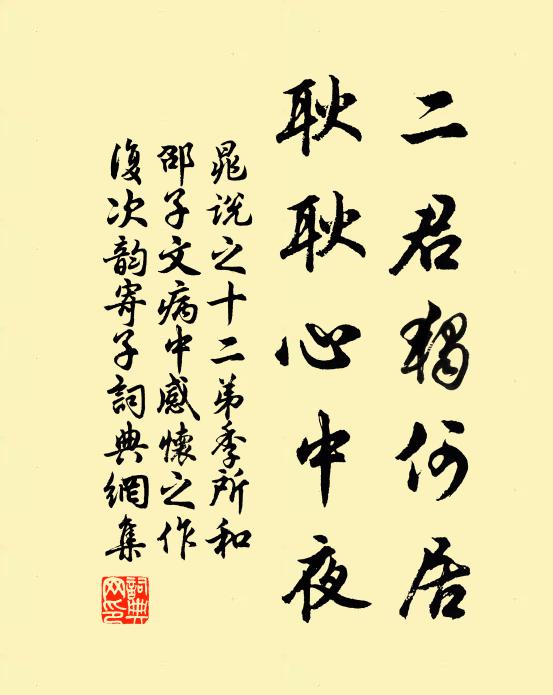 二君独何居
耿耿心中夜
晁说之十二弟季所和
邵子文病中感懷之作
復次韵寄子詞典網集
詞典网印